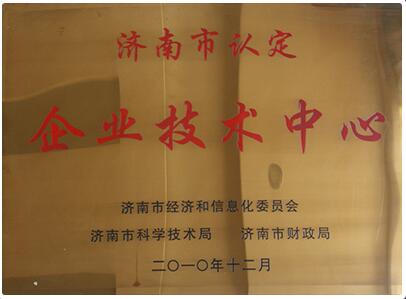 济南市认定
企业技术中心
济南市经济和信息化委员会
济南市科学技术局 济南市财政局
二〇一〇年十二月